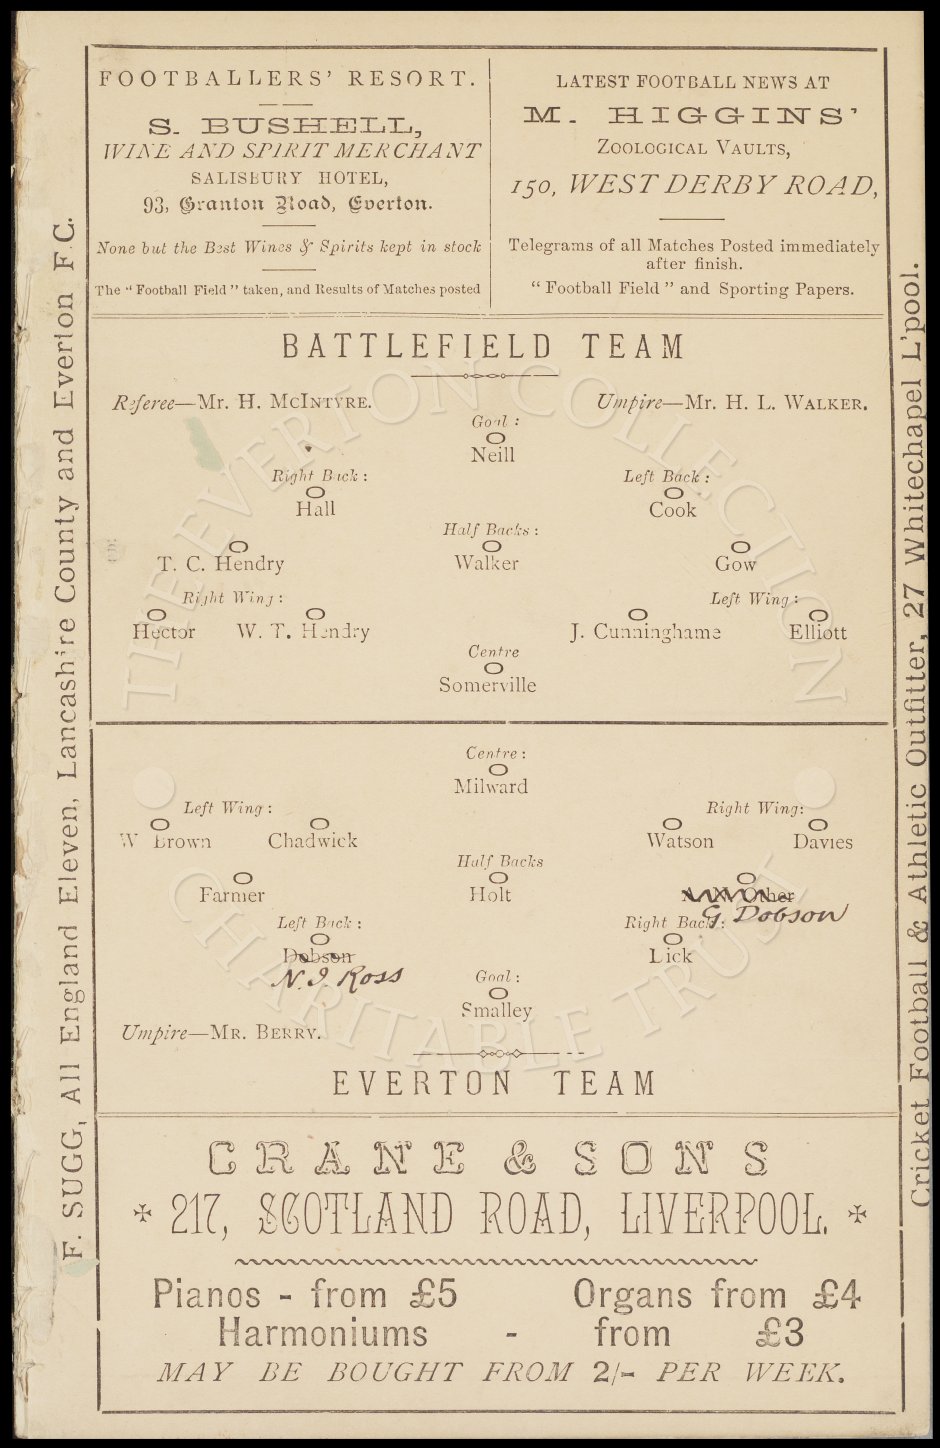 FOOTBALLERS' RESORT.
S. BUSHELL,
WINE AND SPIRIT MERCHANT
SALISBURY HOTEL,
93, Granton Road, Everton.
None but the Best Wines & Spirits kept in stock
The "Football Field" taken, and Results of Matches posted
LATEST FOOTBALL NEWS AT
M. HIGGINS'
ZOOLOGICAL VAULTS,
150, WEST DERBY ROAD,
Telegrams of all Matches Posted immediately
after finish.
"Football Field" and Sporting Papers.
F. SUGG, All England Eleven, Lancashire County and Everton F.C.
Cricket Football & Athletic Outfitter, 27 Whitechapel L'pool.
BATTLEFIELD TEAM
Referee—Mr. H. McIntyre.
Umpire—Mr. H. L. Walker.
Goal:
Neill
Right Back:
Left Back:
Hall
Cook
Half Backs:
T. C. Hendry
Walker
Gow
Right Wing:
Left Wing:
Hector
W. T. Hendry
J. Cunninghame
Elliott
Centre
Somerville
Centre:
Milward
Left Wing:
Right Wing:
W Brown
Chadwick
Watson
Davies
Half Backs
Farmer
Holt
A. N. Other
G. Dobson
Left Back:
Right Back:
Dobson
Dick
N. J. Ross
Goal:
Smalley
Umpire—Mr. Berry.
EVERTON TEAM
CRANE & SONS
217, SCOTLAND ROAD, LIVERPOOL.
Pianos - from £5
Organs from £4
Harmoniums - from £3
MAY BE BOUGHT FROM 2/- PER WEEK.
THE EVERTON COLLECTION
CHARITABLE TRUST